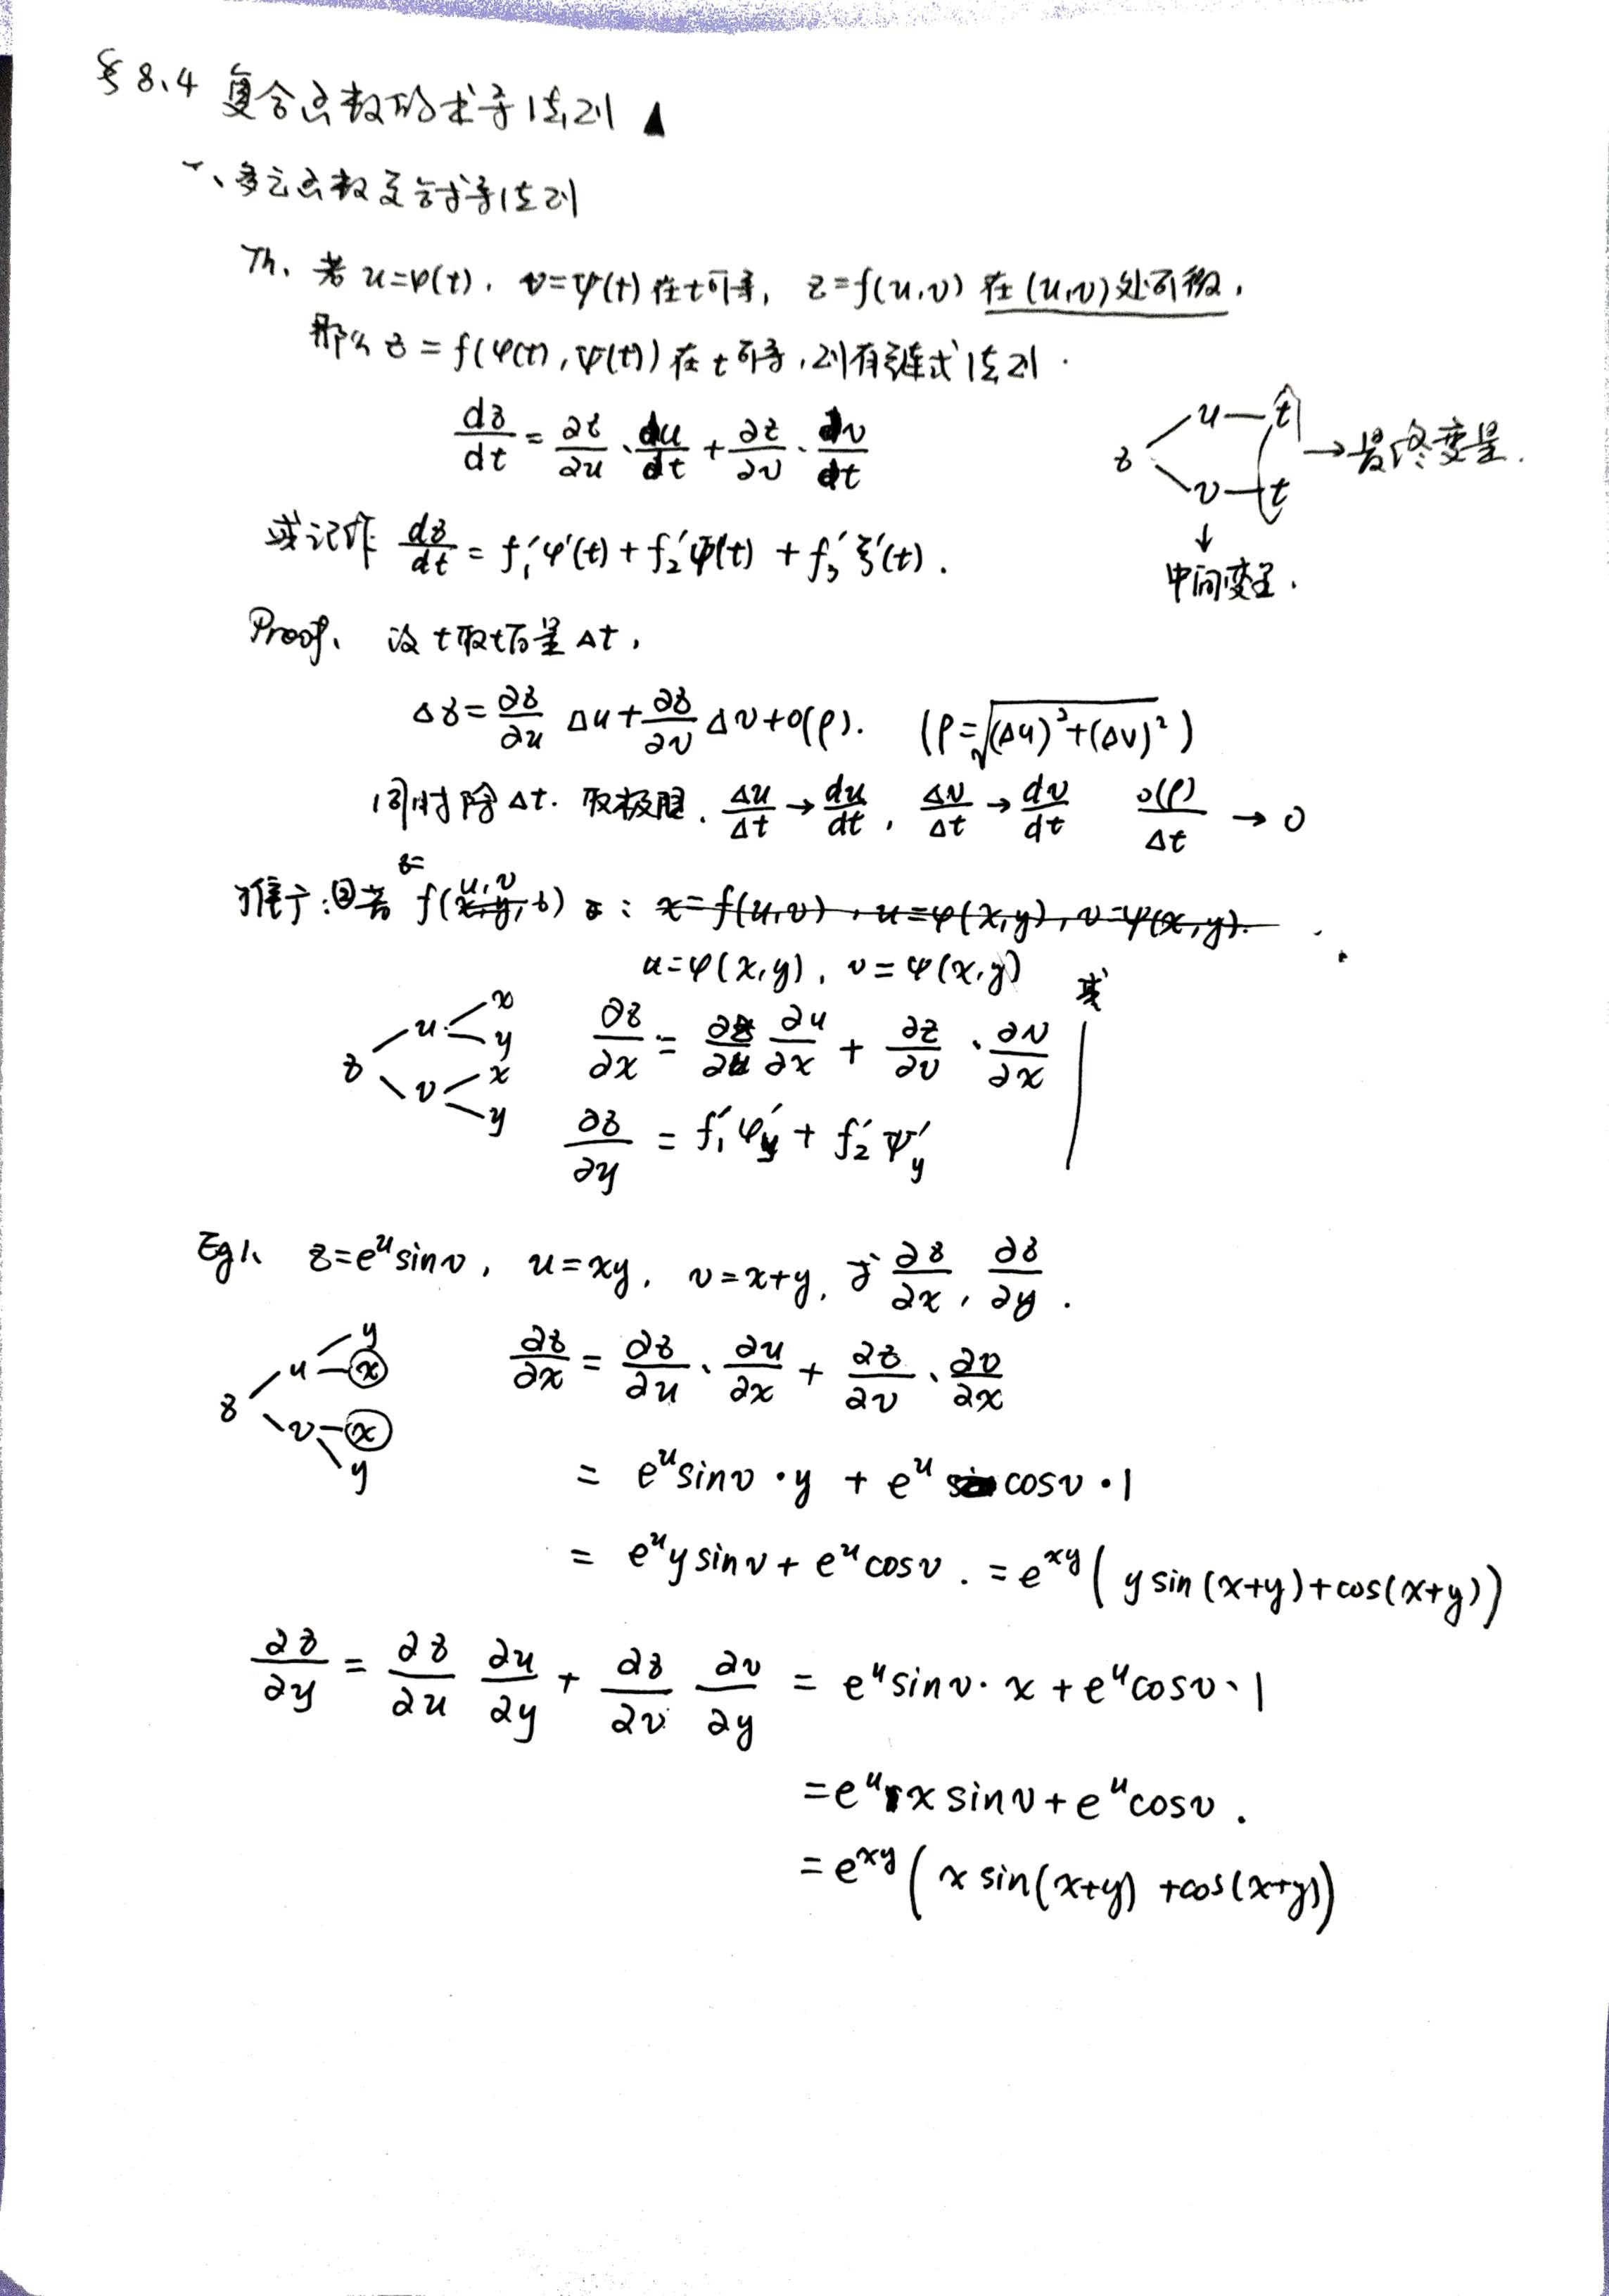 §8.4 复合函数的求导法则 ▲
一、多元函数复合求导法则
Th. 若 u=φ(t), v=ψ(t) 在t可导, z=f(u,v) 在(u,v)处可微,
那么 z=f(φ(t),ψ(t)) 在 t 可导, 则有链式法则.
dz/dt = ∂z/∂u · du/dt + ∂z/∂v · dv/dt
z u t v t → 最终变量.
↓
中间变量.
或记作 dz/dt = f₁′φ′(t) + f₂′ψ′(t) + f₃′ξ′(t).
Proof. 设 t 取 量 Δt,
Δz = ∂z/∂u Δu + ∂z/∂v Δv + o(ρ). (ρ=√((Δu)²+(Δv)²))
同时除 Δt. 取极限. Δu/Δt → du/dt, Δv/Δt → dv/dt o(ρ)/Δt → 0
推广: ②若 z= f(u,v) : x=f(u,v), u=φ(x,y), v=ψ(x,y).
u=φ(x,y), v=ψ(x,y) 或
z u x y v x y
∂z/∂x = ∂z/∂u ∂u/∂x + ∂z/∂v · ∂v/∂x
∂z/∂y = f₁′φ′y + f₂′ψ′y
Eg1. z=eᵘsinv, u=xy, v=x+y, 求 ∂z/∂x, ∂z/∂y.
z u y x v x y
∂z/∂x = ∂z/∂u · ∂u/∂x + ∂z/∂v · ∂v/∂x
= eᵘsinv·y + eᵘ cosv·1
= eᵘy sinv + eᵘcosv. = e^{xy}(y sin(x+y)+cos(x+y))
∂z/∂y = ∂z/∂u ∂u/∂y + ∂z/∂v ∂v/∂y = eᵘsinv·x + eᵘcosv·1
= eᵘx sinv + eᵘcosv.
= e^{xy}(x sin(x+y) + cos(x+y))